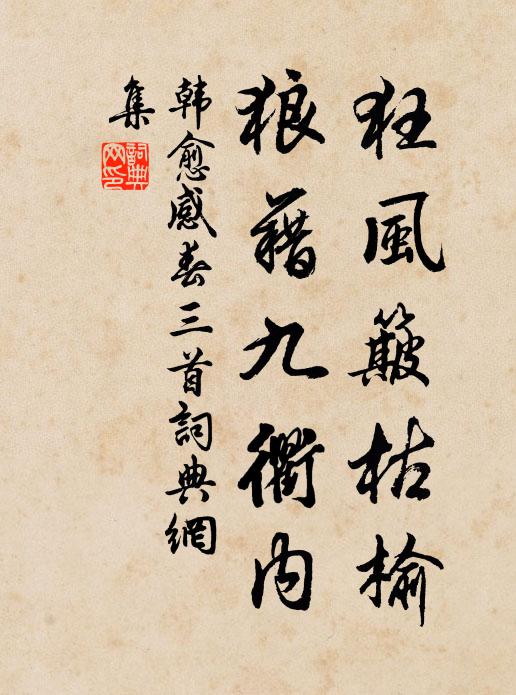 狂風簸枯榆
狼藉九衢内
韩愈感春三首詞典網
集
詞典網印